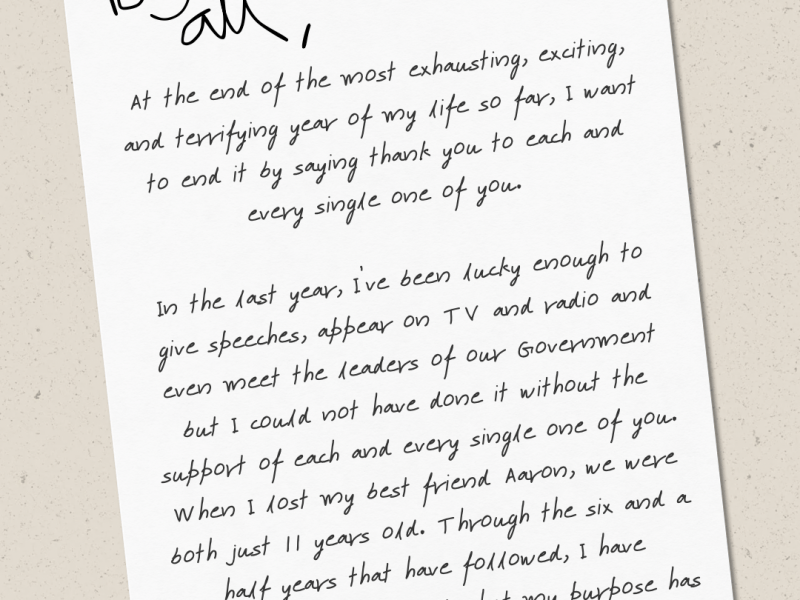 all,
At the end of the most exhausting, exciting,
and terrifying year of my life so far, I want
to end it by saying thank you to each and
every single one of you.
In the last year, I've been lucky enough to
give speeches, appear on TV and radio and
even meet the leaders of our Government
but I could not have done it without the
support of each and every single one of you.
When I lost my best friend Aaron, we were
both just 11 years old. Through the six and a
half years that have followed, I have
my purpose has